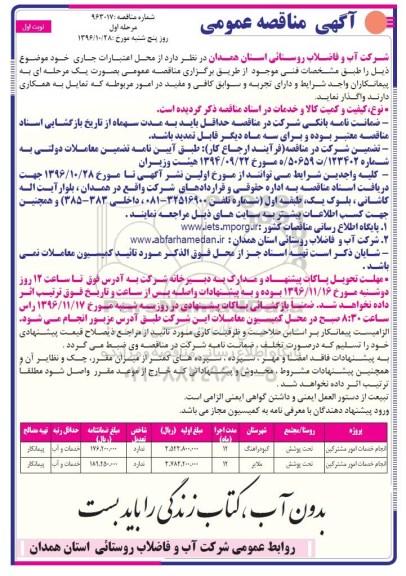 شماره مناقصه : ۹۶۳۰۱۷
مرحله اول
روز پنج شنبه مورخ : ۱۳۹۶/۱۰/۲۸
آگهی مناقصه عمومی
نوبت اول
شرکت آب و فاضلاب روستائی استان همدان در نظر دارد از محل اعتبارات جاری خود موضوع
ذیل را طبق مشخصات فنی موجود از طریق برگزاری مناقصه عمومی بصورت یک مرحله ای به
پیمانکاران واجد شرایط و دارای تجربه و سوابق کافی و مفید در امور مربوطه که تمایل به همکاری
دارند واگذار نماید.
• نوع، کیفیت و کمیت کالا و خدمات در اسناد مناقصه ذکر گردیده است.
- ضمانت نامه بانکی شرکت در مناقصه حداقل باید به مدت سه ماه از تاریخ بازگشایی اسناد
مناقصه معتبر بوده و برای سه ماه دیگر قابل تمدید باشد.
- تضمین شرکت در مناقصه (فرآیند ارجاع کار): طبق آیین نامه تضمین معاملات دولتی به
شماره ۱۲۳۴۰۲/ت۵۰۶۵۹ ه مورخ ۱۳۹۴/۰۹/۲۲ هیئت وزیران
- کلیه واجدین شرایط می توانند از مورخ اولین نشر آگهی تا مورخ ۱۳۹۶/۱۰/۲۸ جهت
دریافت اسناد مناقصه به اداره حقوقی و قراردادهای شرکت واقع در همدان ، بلوار آیت اله
کاشانی ، بلوک یک، طبقه اول (شماره تلفن ۳۲۵۱۶۹۰۰-۰۸۱ داخلی ۳۸۳-۳۸۵) و همچنین
جهت کسب اطلاعات بیشتر به سایت های ذیل مراجعه نمایند .
۱. پایگاه اطلاع رسانی مناقصات کشور: www.iets.mporg.ir
۲. شرکت آب و فاضلاب روستائی استان همدان : www.abfarhamedan.ir
- شایان ذکر است تهیه اسناد جز از محل فوق الذکر مورد تائید کمیسیون معاملات نمی
باشد .
• مهلت تحویل پاکات پیشنهاد و مدارک به دبیرخانه شرکت به آدرس فوق تا ساعت ۱۲ روز
دوشنبه مورخ ۱۳۹۶/۱۱/۱۶ بوده و به پیشنهادات واصله پس از ساعت و تاریخ فوق ترتیب اثر
داده نخواهد شد. ضمنا بازگشائی پاکات پیشنهادی در روز سه شنبه مورخ ۱۳۹۶/۱۱/۱۷ راس
ساعت ۸:۳۰ صبح در محل کمیسیون معاملات این شرکت طبق آدرس مزبور انجام می شود.
الزامیست پیمانکار بر اساس صلاحیت و ظرفیت کاری مورد تأیید از مراجع ذیصلاح قیمت پیشنهادی
خود را تسلیم که درصورت تخلف ، ضمانت نامه شرکت در مناقصه وی ضبط می گردد .
به پیشنهادات فاقد امضاء و مهر، سپرده ، سپرده های کمتر از میزان مقرر، چک و نظایر آن و
همچنین پیشنهادات مشروط ، مخدوش و پیشنهاداتی که خارج از موعد مقرر واصل شود مطلقا
ترتیب اثر داده نخواهد شد .
تبعیت از دستور العمل ایمنی و داشتن گواهی ایمنی الزامی است.
ورود پیشنهاد دهندگان با معرفی نامه به کمیسیون مجاز می باشد.
پروژه روستا/مجتمع شهرستان مدت اجرا (ماه) مبلغ اولیه (ریال) شاخص تعدیل مبلغ ضمانتنامه (ریال) حداقل رتبه تهیه مصالح
انجام خدمات امور مشترکین تحت پوشش کبودراهنگ ۱۲ ندارد خدمات و آب پیمانکار
انجام خدمات امور مشترکین تحت پوشش ملایر ۱۲ ندارد خدمات و آب پیمانکار
بدون آب ، کتاب زندگی را باید بست
روابط عمومی شرکت آب و فاضلاب روستائی استان همدان